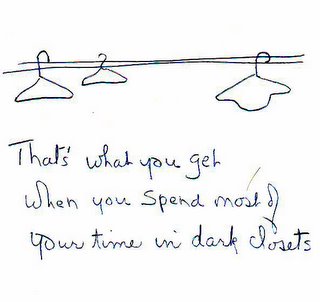 That's what you get
when you spend most of
your time in dark closets